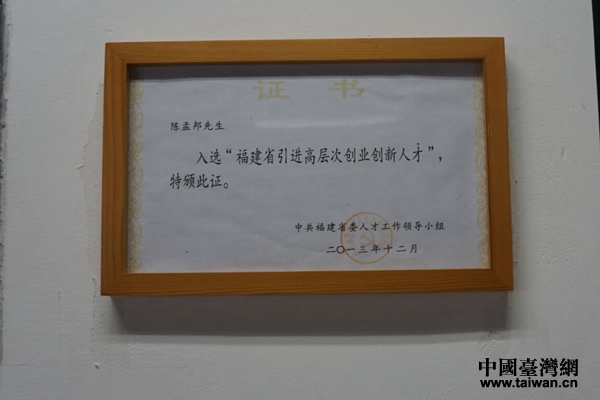 证书
陈孟邦先生
入选“福建省引进高层次创业创新人才”，
特颁此证。
中共福建省委人才工作领导小组
二〇一三年十二月
中國臺灣網
www.taiwan.cn